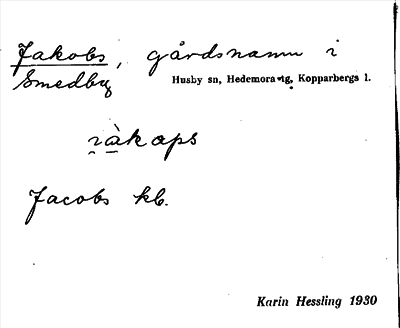 Jakobs, gårdsnamn i
Smedby
Husby sn, Hedemora tg, Kopparbergs l.
i̯àkaps
Jacobs kb.
Karin Hessling 1930